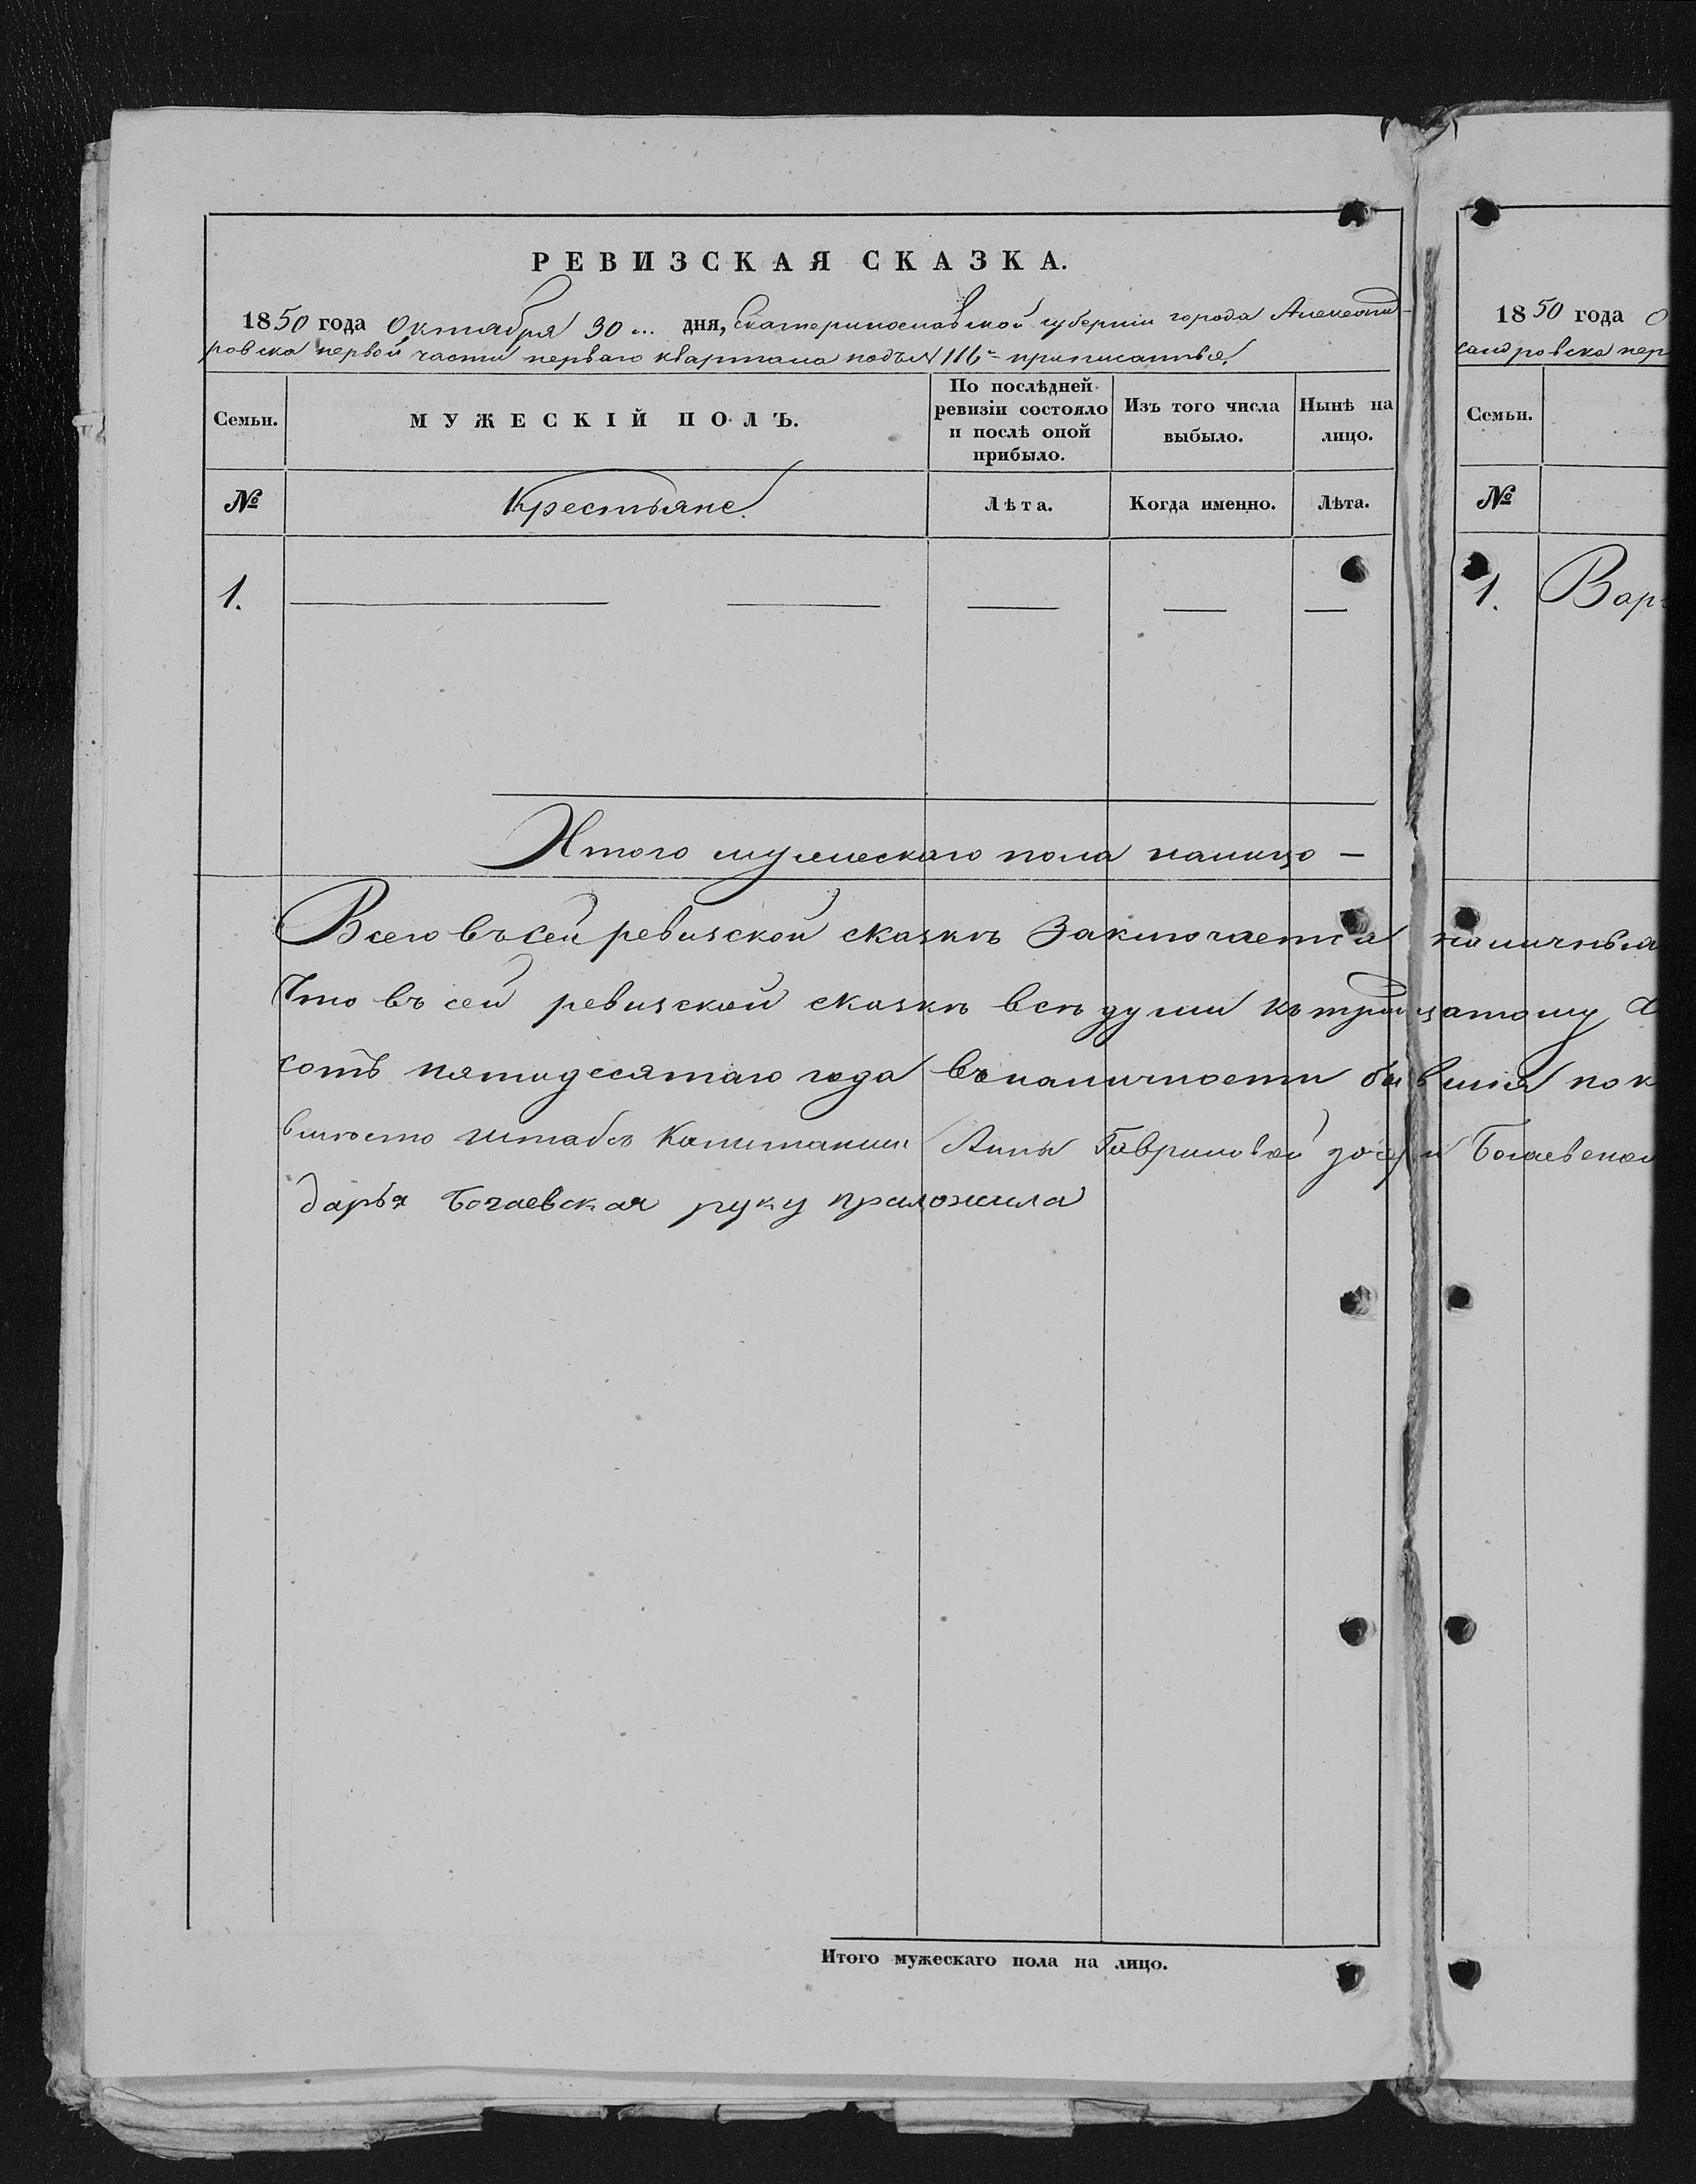 РЕВИЗСКАЯ СКАЗКА.
1850 года Октября 30 дня, Екатеринославской губерніи города Александ-
ровска первой части перваго квартала подъ № 116 приписанныя
Семьи. МУЖЕСКІЙ ПОЛЪ. По послѣдней ревизіи состояло и послѣ оной прибыло. Изъ того числа выбыло. Нынѣ на лицо.
№ Крестьяне. Лѣта. Когда именно. Лѣта.
1. — — — — —
Итого мужескаго пола налицо —
Всего въ сей ревизской сказкѣ Заключается наличныхъ
Что въ сей ревизской сказкѣ всѣ души къ тридцатому
сотъ пятидесятаго года въ наличности бывшія пок
вмѣсто штабсъ Капитанши Анны Гавриловой дочери Богаевской
дарья Богаевская руку приложила
Итого мужескаго пола на лицо.
1850 года О
сандровска пер
Семьи.
№
1. Варв